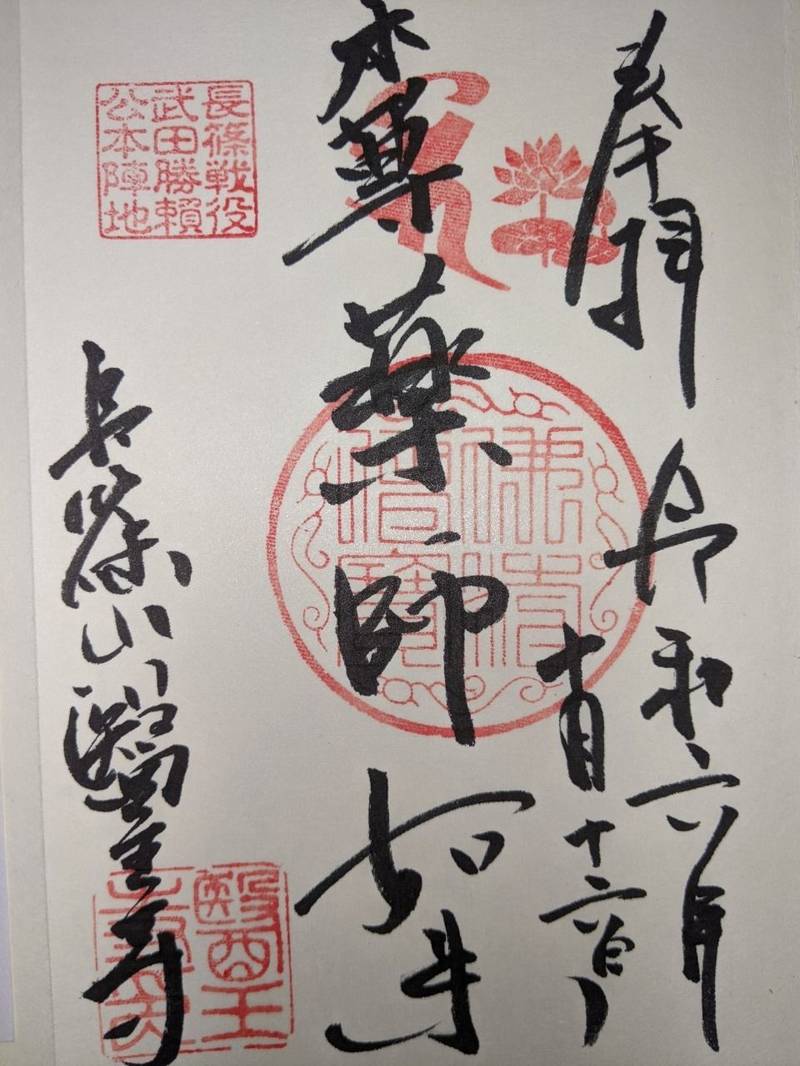 奉拝
令和六年
十六日
本尊
薬師如来
佛法
僧寶
長篠戦役
武田勝賴
公本陣地
長篠山醫王寺
醫王